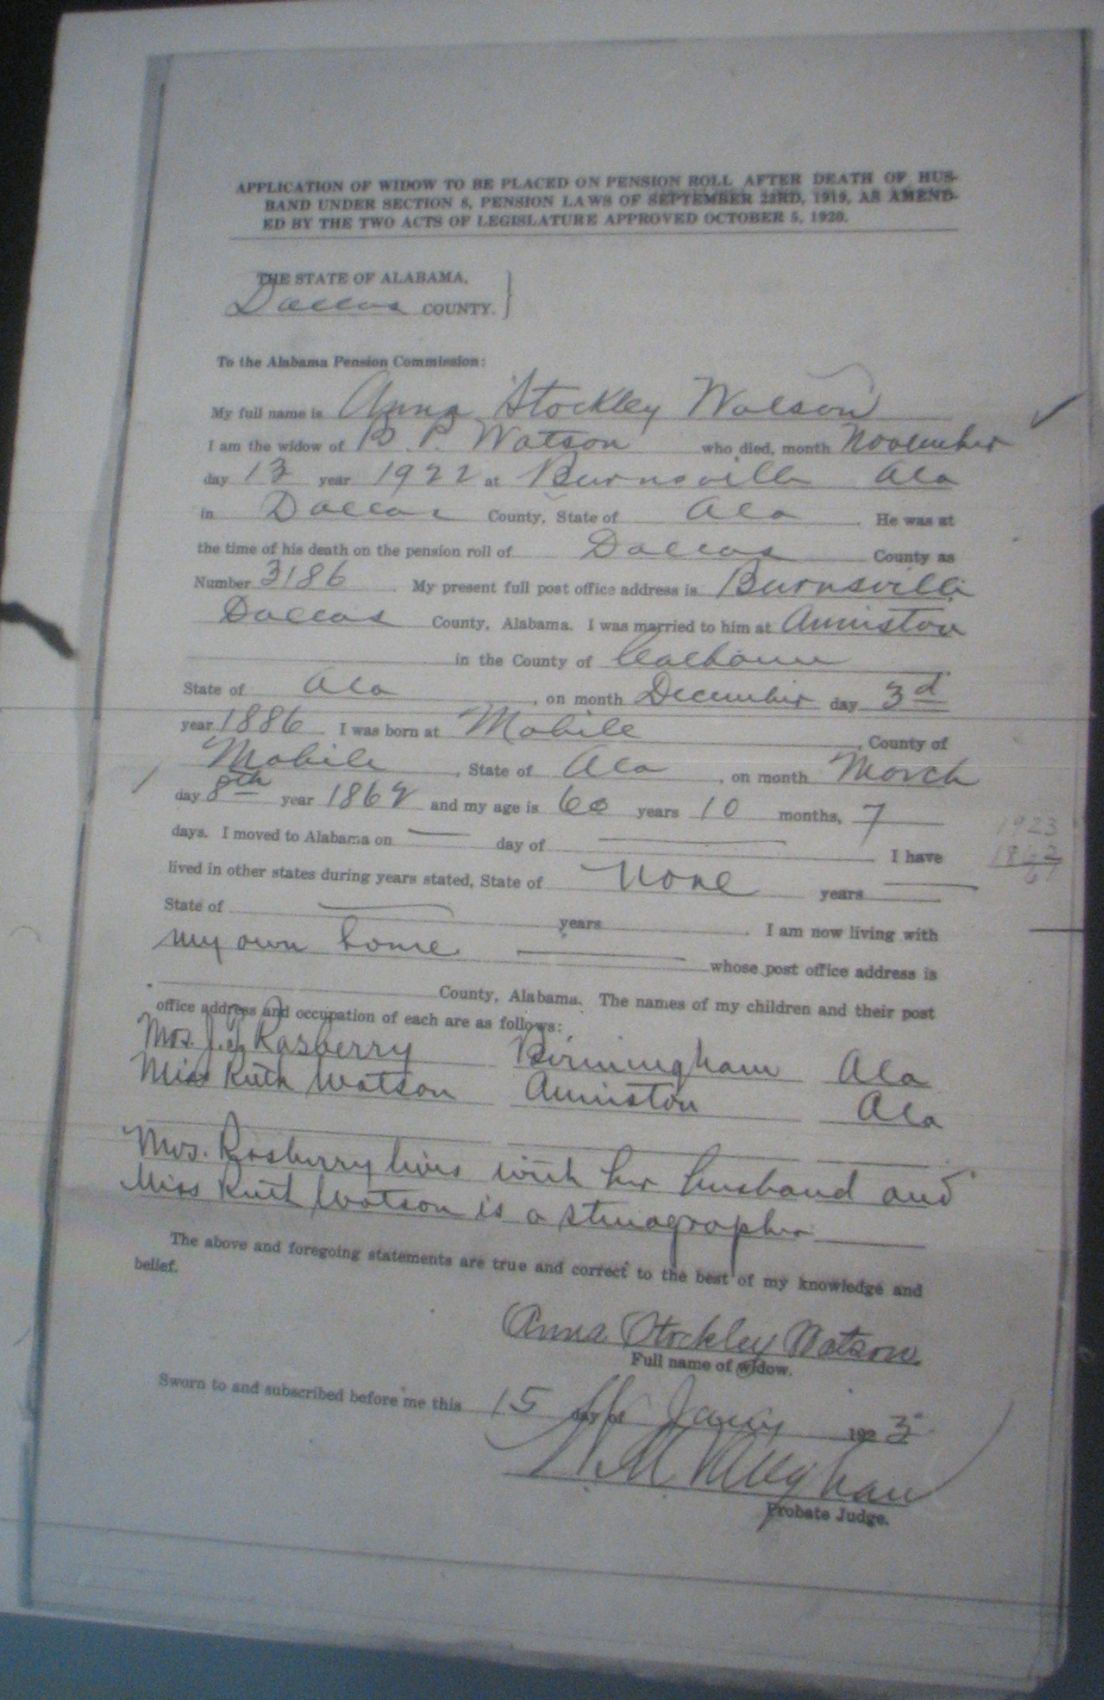 APPLICATION OF WIDOW TO BE PLACED ON PENSION ROLL AFTER DEATH OF HUS-
BAND UNDER SECTION 8, PENSION LAWS OF SEPTEMBER 23RD, 1919, AS AMEND-
ED BY THE TWO ACTS OF LEGISLATURE APPROVED OCTOBER 5, 1920.
THE STATE OF ALABAMA,
Dallas COUNTY.
To the Alabama Pension Commission:
My full name is Anna Stockley Watson
I am the widow of B. P. Watson who died, month November
day 13 year 1922 at Burnsville Ala
in Dallas County, State of Ala He was at
the time of his death on the pension roll of Dallas County as
Number 3186 My present full post office address is Burnsville
Dallas County, Alabama. I was married to him at Anniston
in the County of Calhoun
State of Ala, on month December day 3d
year 1886 I was born at Mobile, County of
Mobile, State of Ala, on month March
day 8th year 1862 and my age is 60 years 10 months, 7
days. I moved to Alabama on — day of — I have
lived in other states during years stated, State of None years —
State of — years I am now living with
my own home — whose post office address is
County, Alabama. The names of my children and their post
office address and occupation of each are as follows:
Mrs. Rasberry Birmingham Ala
Miss Ruth Watson Anniston Ala
Mrs. Rasberry lives with her husband and
Miss Ruth Watson is a stenographer
The above and foregoing statements are true and correct to the best of my knowledge and
belief.
Anna Stockley Watson
Full name of widow.
Sworn to and subscribed before me this 15 day of Jany 1923
Probate Judge.
1923
1862
61